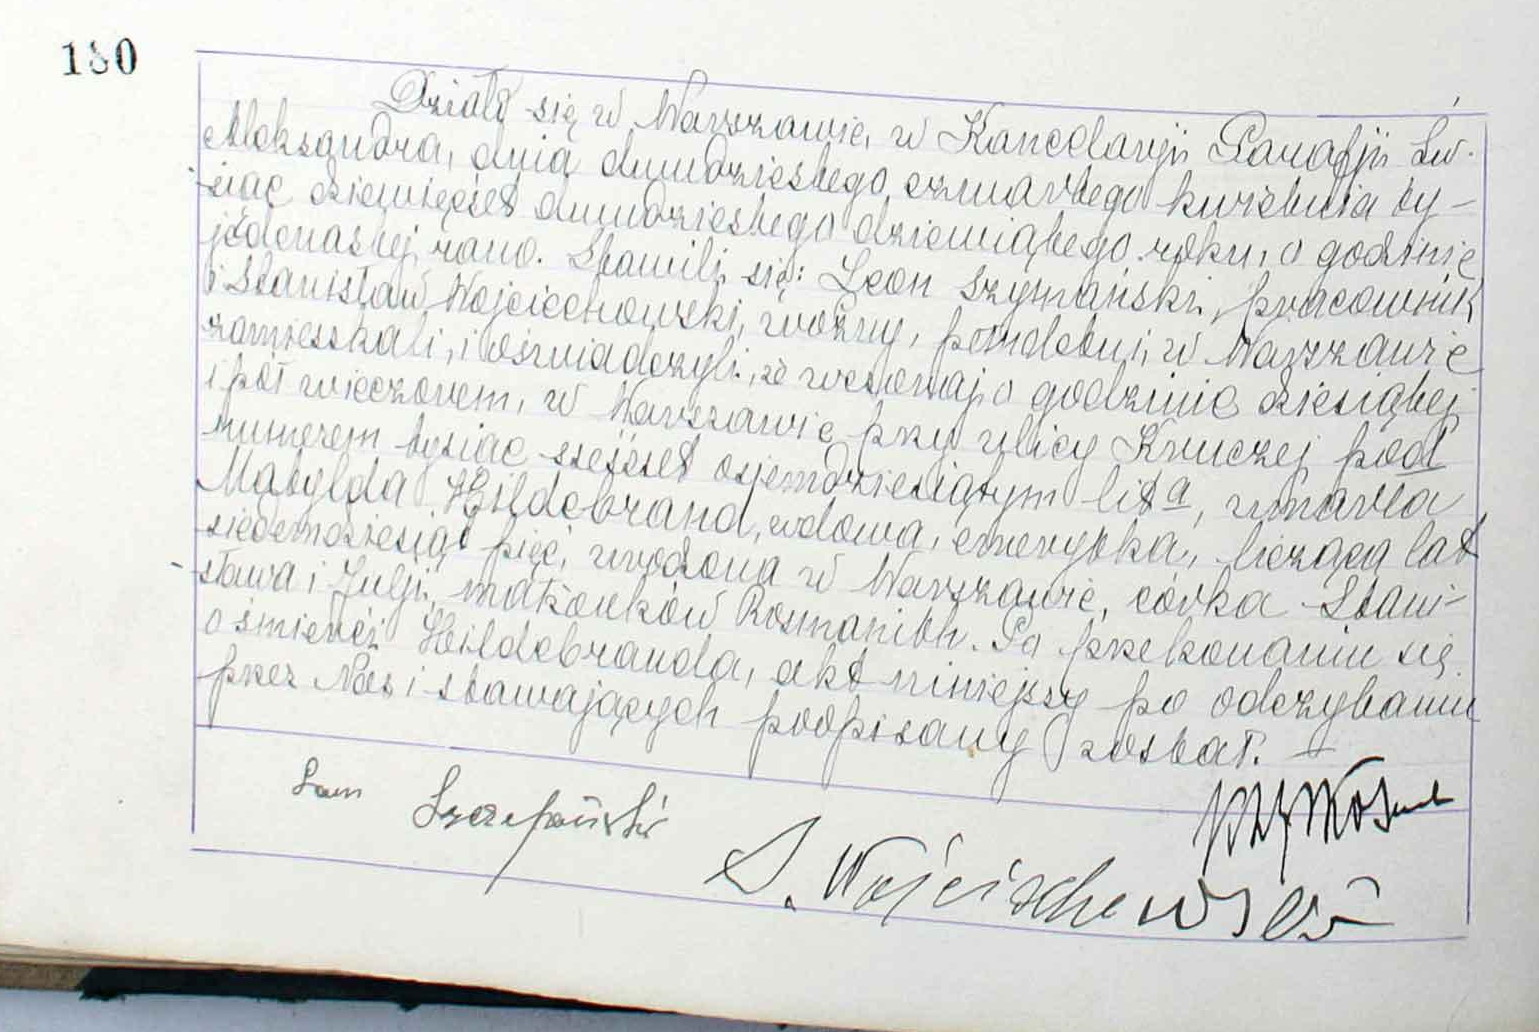 180
Działo się w Warszawie, w Kancelarji Parafji Św.
Aleksandra, dnia dwudziestego czwartego kwietnia ty-
siąc dziewięćset dwudziestego dziewiątego roku, o godzinie
jedenastej rano. Stawili się: Leon Szymański, pracownik
i Stanisław Wojciechowski, woźny, pełnoletni, w Warszawie
zamieszkali, i oświadczyli, że wczoraj o godzinie dziesiątej
i pół wieczorem, w Warszawie przy ulicy Kruczej pod
numerem tysiąc sześćset osiemdziesiątym lit a, umarła
Matylda Hildebrand, wdowa, emerytka, licząca lat
siedemdziesiąt pięć, urodzona w Warszawie, córka Stani-
sława i Julji, małżonków Rosmanith. Po przekonaniu się
o śmierci Hildebranda, akt niniejszy po odczytaniu
przez Nas i stawających podpisany został. –
Szczepański
S. Wojciechowski